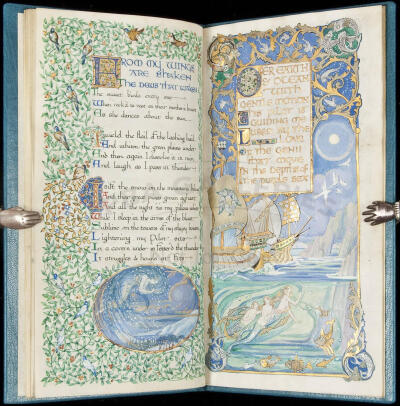 FROM MY WINGS
ARE SHAKEN
THE DEWS THAT WAKEN
The sweet buds every one
When rocked to rest on their mother's breast
As she dances about the sun
I wield the flail of the lashing hail
And whiten the green plains under
And then again I dissolve it in rain
And laugh as I pass in thunder
I sift the snow on the mountains below
And their great pines groan aghast
And all the night 'tis my pillow white
While I sleep in the arms of the blast
Sublime on the towers of my skyey bowers
Lightning my Pilot sits
In a cavern under is fetter'd the thunder
It struggles & howls at fits
OVER EARTH
& OCEAN
WITH
GENTLE MOTION
THIS PILOT IS
GUIDING ME
LURED BY THE
LOVE
OF THE GENII
THAT MOVE
IN THE DEPTHS OF
THE PURPLE SEA